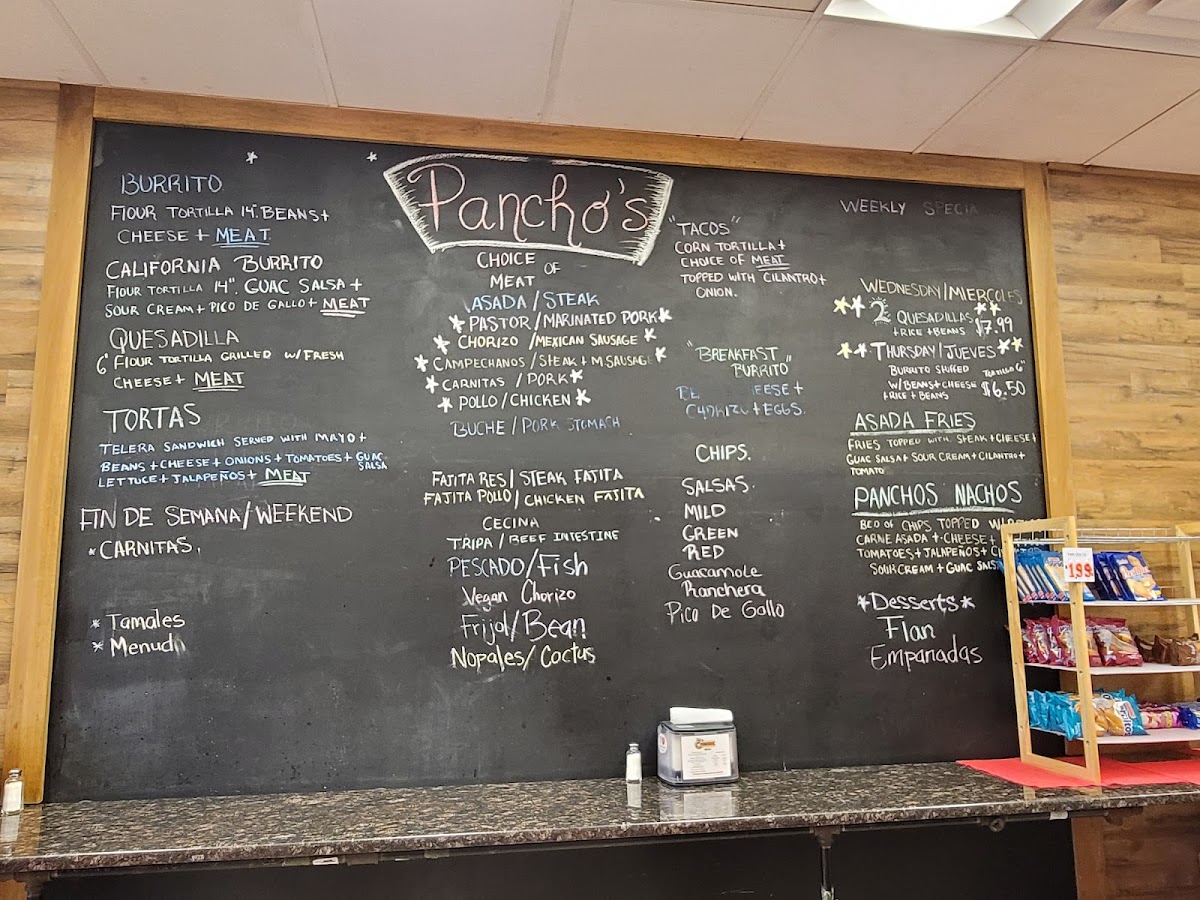 Pancho's
BURRITO
FLOUR TORTILLA 14". BEANS+
CHEESE + MEAT
CALIFORNIA BURRITO
FLOUR TORTILLA 14". GUAC SALSA +
SOUR CREAM + PICO DE GALLO + MEAT
QUESADILLA
6" FLOUR TORTILLA GRILLED W/FRESH
CHEESE + MEAT
TORTAS
TELERA SANDWICH SERVED WITH MAYO +
BEANS + CHEESE + ONIONS + TOMATOES + GUAC SALSA
LETTUCE + JALAPEÑOS + MEAT
FIN DE SEMANA/WEEKEND
*CARNITAS.
* Tamales
* Menudo
CHOICE OF
MEAT
ASADA/STEAK
PASTOR/MARINATED PORK
CHORIZO/MEXICAN SAUSAGE
CAMPECHANOS/STEAK + M.SAUSAGE
CARNITAS/PORK
POLLO/CHICKEN
BUCHE/PORK STOMACH
FAJITA RES/STEAK FAJITA
FAJITA POLLO/CHICKEN FAJITA
CECINA
TRIPA/BEEF INTESTINE
PESCADO/Fish
Vegan Chorizo
Frijol/Bean
Nopales/Cactus
"TACOS"
CORN TORTILLA +
CHOICE OF MEAT
TOPPED WITH CILANTRO +
ONION.
"BREAKFAST
BURRITO"
+ EGGS.
CHIPS.
SALSAS.
MILD
GREEN
RED
Guacamole
Ranchera
Pico De Gallo
WEEKLY SPECIA
WEDNESDAY/MIERCOLES
2 QUESADILLAS
+ RICE + BEANS $7.99
THURSDAY/JUEVES
BURRITO STUFFED TORTILLA 6"
W/BEANS + CHEESE
+ RICE + BEANS $6.50
ASADA FRIES
FRIES TOPPED WITH STEAK + CHEESE +
GUAC SALSA + SOUR CREAM + CILANTRO +
TOMATO
PANCHOS NACHOS
BED OF CHIPS TOPPED
CARNE ASADA + CHEESE +
TOMATOES + JALAPEÑOS +
SOUR CREAM + GUAC SALSA
*Desserts*
Flan
Empanadas
1.99